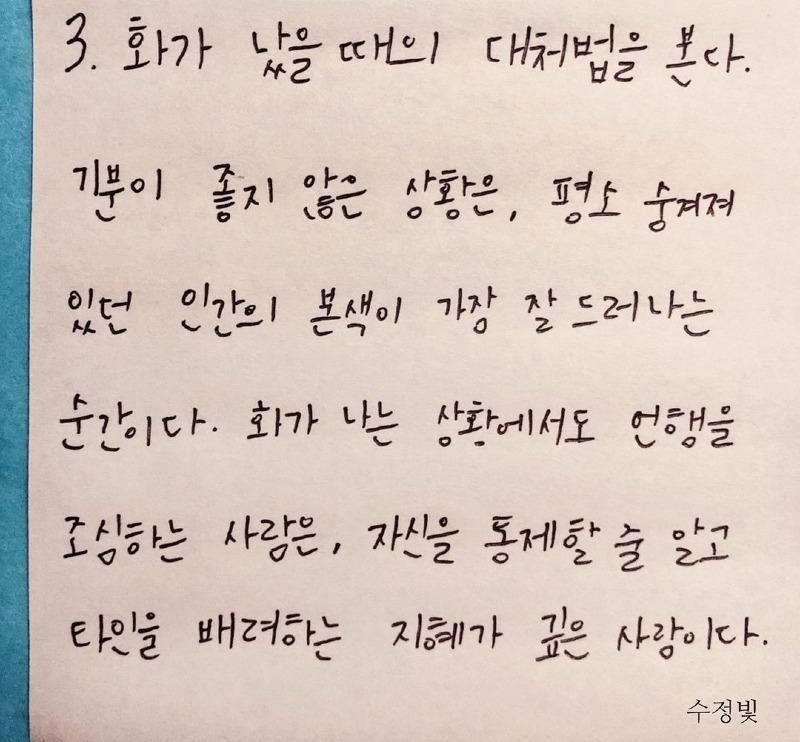 3. 화가 났을 때의 대처법을 본다.
기분이 좋지 않은 상황은, 평소 숨겨져
있던 인간의 본색이 가장 잘 드러나는
순간이다. 화가 나는 상황에서도 언행을
조심하는 사람은, 자신을 통제할 줄 알고
타인을 배려하는 지혜가 깊은 사람이다.
수정빛